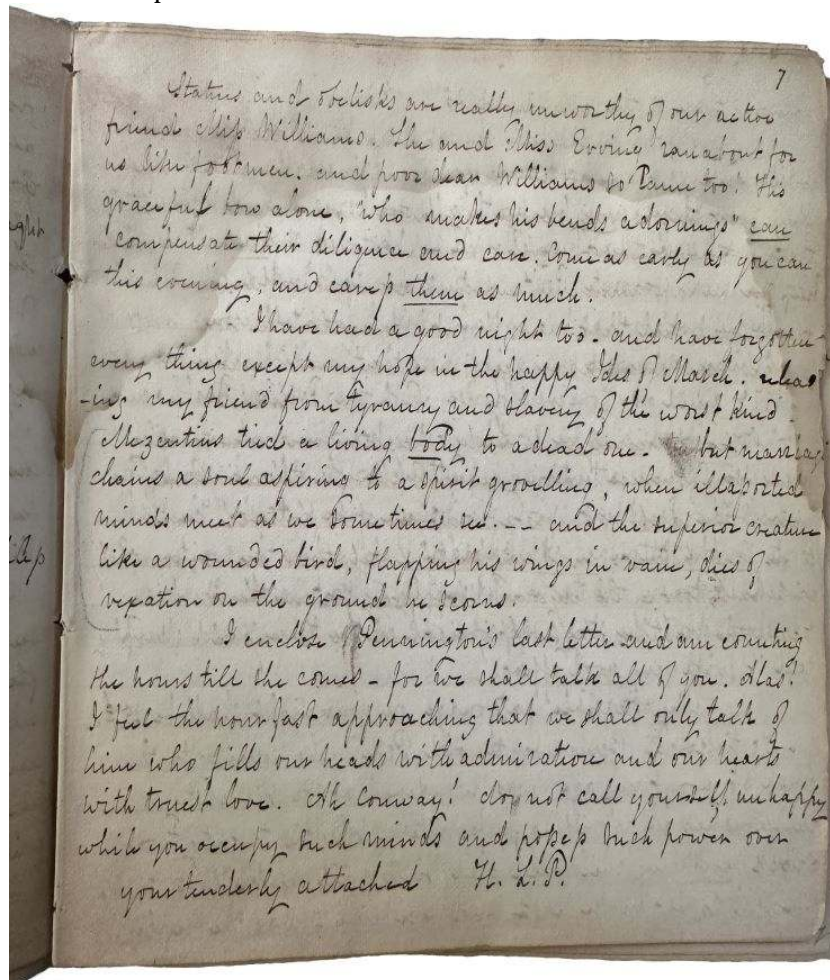 7
Statues and Obelisks are really unworthy of our active
friend Miss Williams. She and Miss Erving ran about for
us like footmen. and poor dear Williams so Lame too! His
graceful bow alone, "who makes his bends adornings" can
compensate their diligence and care. Come as early as you can
this evening, and caress them as much.
I have had a good night too - and have forgotten
every thing except my hope in the happy Ides of March. releas
-ing my friend from tyranny and slavery of the worst kind -
Mezentius tied a living body to a dead one. but marriage
chains a soul aspiring to a spirit grovelling, when illassorted
minds meet as we sometimes see. -- and the superior creature
like a wounded bird, flapping his wings in vain, dies of
vexation on the ground he scorns.
I enclose Pennington's last letter and am counting
the hours till she comes - for we shall talk all of you. Alas!
I feel the hour fast approaching that we shall only talk of
him who fills our heads with admiration and our hearts
with truest love. Ah Conway! do not call yourself unhappy
while you occupy such minds and possess such power over
your tenderly attached H. L. P.